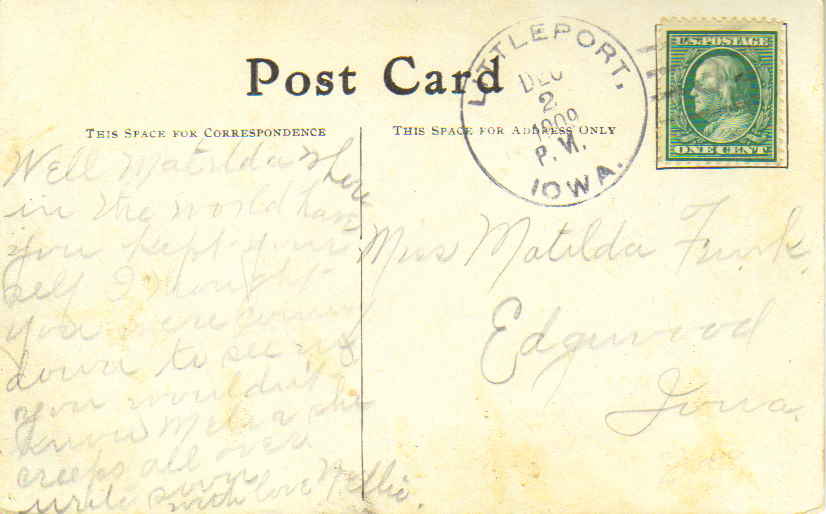 Post Card
THIS SPACE FOR CORRESPONDENCE
THIS SPACE FOR ADDRESS ONLY
LITTLEPORT,
DEC
2
1909
P.M.
IOWA.
U.S. POSTAGE
ONE CENT
Well Matilda where
in the world have
you kept your
self I thought
you were coming
down to see us
you wouldn't
know she
creeps all over
write soon
with love Nellie.
Miss Matilda Funk.
Edgewood
Iowa.